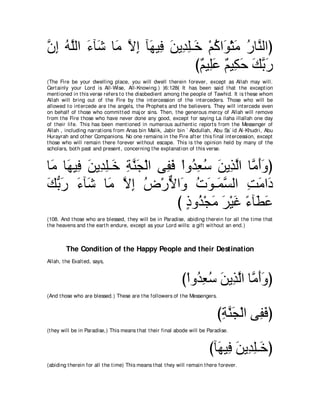 النَّارُ مَثْوَاكُمْ خَـلِدِينَ فِيهَآ إِلاَّ مَا شَآءَ اللَّهُ إِنَّ
رَبَّكَ حَكِيمٌ عَلِيمٌ)
(The Fire be your dwelling place, you will dwell therein forever, except as Allah may will.
Certainly your Lord is All-Wise, All-Knowing.) (6:128) It has been said that the exception
mentioned in this verse refers to the disobedient among the people of Tawhid. It is these whom
Allah will bring out of the Fire by the intercession of the interceders. Those who will be
allowed to intercede are the angels, the Prophets and the believers. They will intercede even
on behalf of those who committed major sins. Then, the generous mercy of Allah will remove
from the Fire those who have never done any good, except for saying La ilaha illallah one day
of their life. This has been mentioned in numerous authentic reports from the Messenger of
Allah , including narrations from Anas bin Malik, Jabir bin `Abdullah, Abu Sa`id Al-Khudri, Abu
Hurayrah and other Companions. No one remains in the Fire after this final intercession, except
those who will remain there forever without escape. This is the opinion held by many of the
scholars, both past and present, concerning the explanation of this verse.
وَأَمَّا الَّذِينَ سُعِدُواْ فَفِى الْجَنَّةِ خَـلِدِينَ فِيهَا مَا
دَامَتِ السَّمَـوَتُ وَالاٌّرْضُ إِلاَّ مَا شَآءَ رَبُّكَ
عَطَآءً غَيْرَ مَجْذُوذٍ )
(108. And those who are blessed, they will be in Paradise, abiding therein for all the time that
the heavens and the earth endure, except as your Lord wills: a gift without an end.)
The Condition of the Happy People and their Destination
Allah, the Exalted, says,
(وَأَمَّا الَّذِينَ سُعِدُواْ)
(And those who are blessed.) These are the followers of the Messengers.
(فَفِى الْجَنَّةِ)
(they will be in Paradise,) This means that their final abode will be Paradise.
(خَـلِدِينَ فِيهَآ)
(abiding therein for all the time) This means that they will remain there forever.